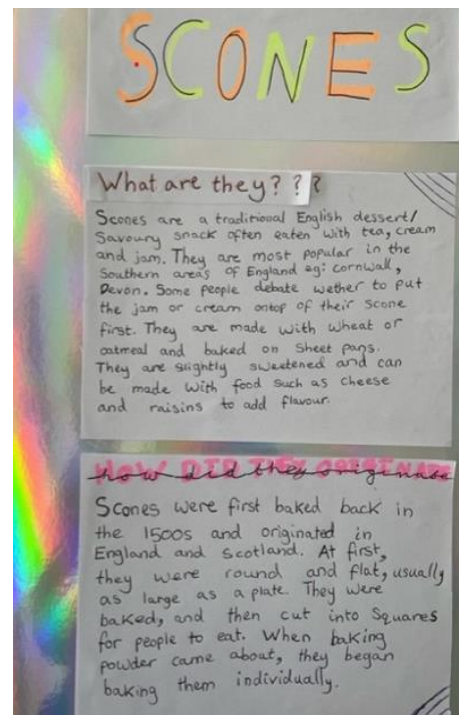 SCONES
What are they???
Scones are a traditional English dessert/
Savoury snack often eaten with tea, cream
and jam. They are most popular in the
Southern areas of England eg: cornwall,
Devon. Some people debate wether to put
the jam or cream ontop of their scone
first. They are made with wheat or
oatmeal and baked on sheet pans.
They are slightly sweetened and can
be made with food such as cheese
and raisins to add flavour.
HOW DID they ORIGINATE
Scones were first baked back in
the 1500s and originated in
England and scotland. At first,
they were round and flat, usually
as large as a plate. They were
baked, and then cut into squares
for people to eat. When baking
powder came about, they began
baking them individually.